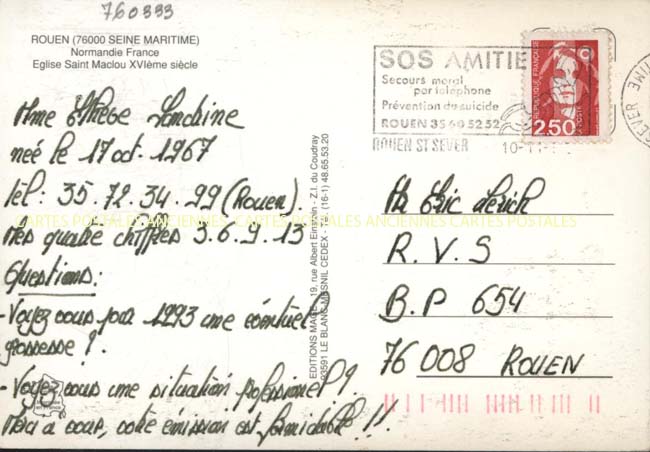 760333
ROUEN (76000 SEINE MARITIME)
Normandie France
Eglise Saint Maclou XVIème siècle
Mme Sandrine
née le 17 oct. 1967
tél: 35.72.34.99 (Rouen).
Mes quatre chiffres 3.6.9.13
Questions:
- Voyez vous pour 1993 une éventuel
grossesse ?.
- Voyez vous une situation professionel ?
Merci a vous, votre émission est formidable !!
EDITIONS MAGE - 19, rue Albert Einstein - Z.I. du Coudray
93591 LE BLANC MESNIL CEDEX - Tél. (16-1) 48.65.53.20
SOS AMITIE
Secours moral
par téléphone
Prévention du suicide
ROUEN 35 60 52 52
ROUEN ST SEVER
10-11
REPUBLIQUE FRANÇAISE
LA POSTE
2,50
SEVER
Mr Eric
R.V.S
B.P 654
76 008 ROUEN
CARTES POSTALES ANCIENNES CARTES POSTALES ANCIENNES CARTES POSTALES